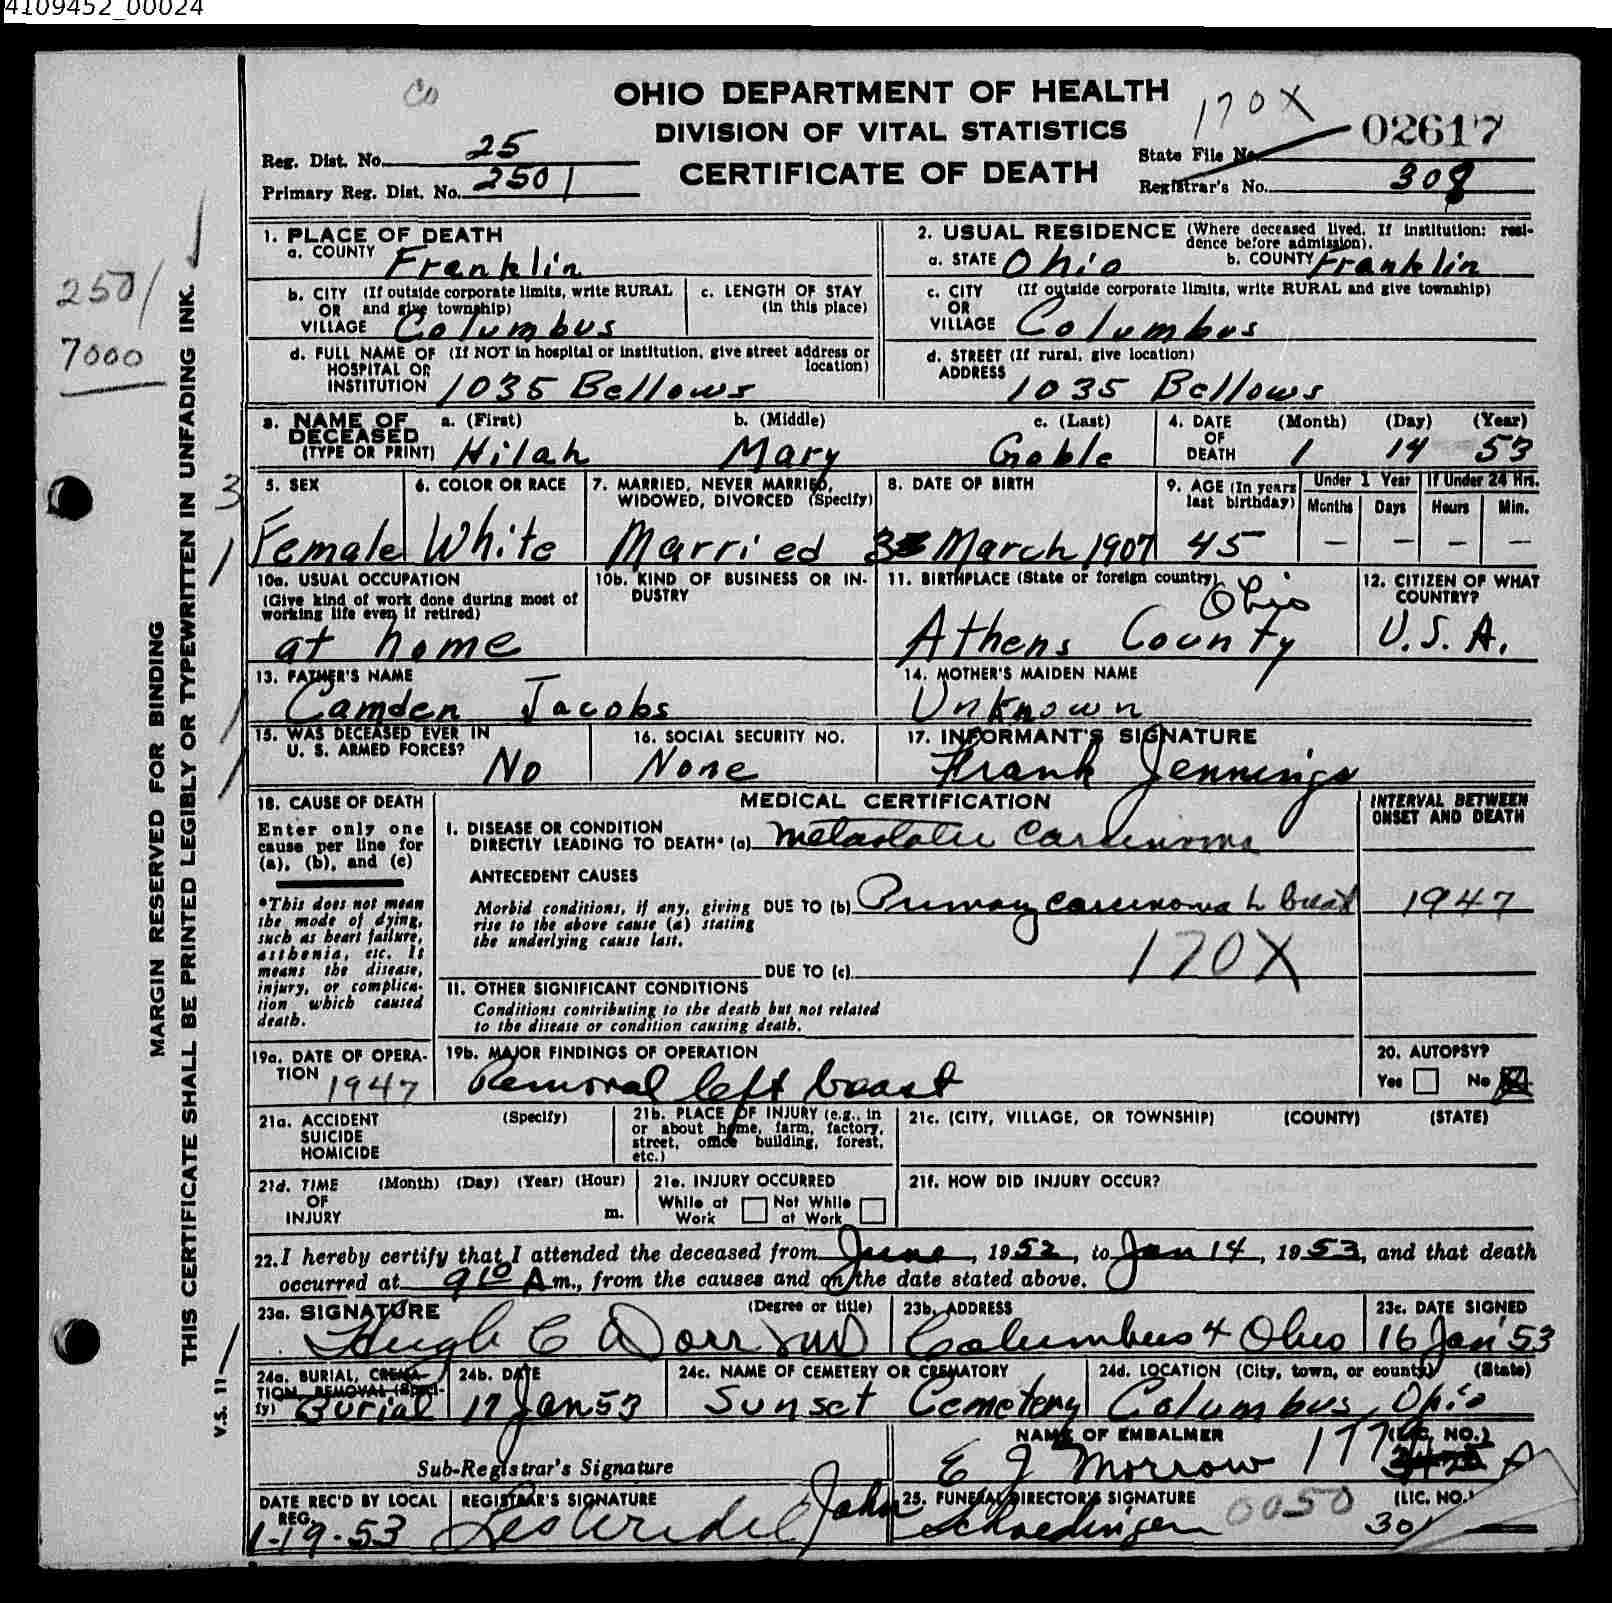 4109452_00024
Co
OHIO DEPARTMENT OF HEALTH
DIVISION OF VITAL STATISTICS
CERTIFICATE OF DEATH
170X
Reg. Dist. No. 25
Primary Reg. Dist. No. 2501
State File No. 02617
Registrar's No. 308
2501
7000
3
MARGIN RESERVED FOR BINDING
THIS CERTIFICATE SHALL BE PRINTED LEGIBLY OR TYPEWRITTEN IN UNFADING INK.
V.S. 11
1. PLACE OF DEATH
a. COUNTY Franklin
b. CITY (If outside corporate limits, write RURAL
OR and give township)
VILLAGE Columbus
c. LENGTH OF STAY
(in this place)
d. FULL NAME OF (If NOT in hospital or institution, give street address or
HOSPITAL OR location)
INSTITUTION 1035 Bellows
2. USUAL RESIDENCE (Where deceased lived. If institution: resi-
dence before admission).
a. STATE Ohio b. COUNTY Franklin
c. CITY (If outside corporate limits, write RURAL and give township)
OR
VILLAGE Columbus
d. STREET (If rural, give location)
ADDRESS 1035 Bellows
3. NAME OF DECEASED (TYPE OR PRINT)
a. (First) b. (Middle) c. (Last)
Hilah Mary Goble
4. DATE OF DEATH (Month) (Day) (Year)
1 14 53
5. SEX
Female
6. COLOR OR RACE
White
7. MARRIED, NEVER MARRIED,
WIDOWED, DIVORCED (Specify)
Married
8. DATE OF BIRTH
3 March 1907
9. AGE (In years
last birthday)
45
Under 1 Year If Under 24 Hrs.
Months Days Hours Min.
— — — —
10a. USUAL OCCUPATION
(Give kind of work done during most of
working life even if retired)
at home
10b. KIND OF BUSINESS OR IN-
DUSTRY
11. BIRTHPLACE (State or foreign country)
Ohio
Athens County
12. CITIZEN OF WHAT
COUNTRY?
U.S.A.
13. FATHER'S NAME
Camden Jacobs
14. MOTHER'S MAIDEN NAME
Unknown
15. WAS DECEASED EVER IN
U. S. ARMED FORCES?
No
16. SOCIAL SECURITY NO.
None
17. INFORMANT'S SIGNATURE
Frank Jennings
18. CAUSE OF DEATH
Enter only one
cause per line for
(a), (b), and (c)
*This does not mean
the mode of dying,
such as heart failure,
asthenia, etc. It
means the disease,
injury, or complica-
tion which caused
death.
MEDICAL CERTIFICATION
INTERVAL BETWEEN
ONSET AND DEATH
I. DISEASE OR CONDITION
DIRECTLY LEADING TO DEATH* (a) Metastatic Carcinoma
ANTECEDENT CAUSES
Morbid conditions, if any, giving
rise to the above cause (a) stating
the underlying cause last.
DUE TO (b) Primary carcinoma L breast 1947
170X
DUE TO (c)
II. OTHER SIGNIFICANT CONDITIONS
Conditions contributing to the death but not related
to the disease or condition causing death.
19a. DATE OF OPERA-
TION 1947
19b. MAJOR FINDINGS OF OPERATION
Removal left breast
20. AUTOPSY?
Yes No X
21a. ACCIDENT (Specify)
SUICIDE
HOMICIDE
21b. PLACE OF INJURY (e.g., in
or about home, farm, factory,
street, office building, forest,
etc.)
21c. (CITY, VILLAGE, OR TOWNSHIP) (COUNTY) (STATE)
21d. TIME (Month) (Day) (Year) (Hour)
OF
INJURY m.
21e. INJURY OCCURRED
While at Not While
Work at Work
21f. HOW DID INJURY OCCUR?
22. I hereby certify that I attended the deceased from June, 1952, to Jan 14, 1953, and that death
occurred at 9 10 A m., from the causes and on the date stated above.
23a. SIGNATURE (Degree or title)
Hugh C Dorr MD
23b. ADDRESS
Columbus 4 Ohio
23c. DATE SIGNED
16 Jan '53
24a. BURIAL, CREMA-
TION, REMOVAL (Speci-
fy) Burial
24b. DATE
17 Jan 53
24c. NAME OF CEMETERY OR CREMATORY
Sunset Cemetery
24d. LOCATION (City, town, or county) (State)
Columbus, Ohio
Sub-Registrar's Signature
NAME OF EMBALMER (LIC. NO.)
E J Morrow
DATE REC'D BY LOCAL
REG.
1-19-53
REGISTRAR'S SIGNATURE
25. FUNERAL DIRECTOR'S SIGNATURE (LIC. NO.)
John Schoedinger
0050
301